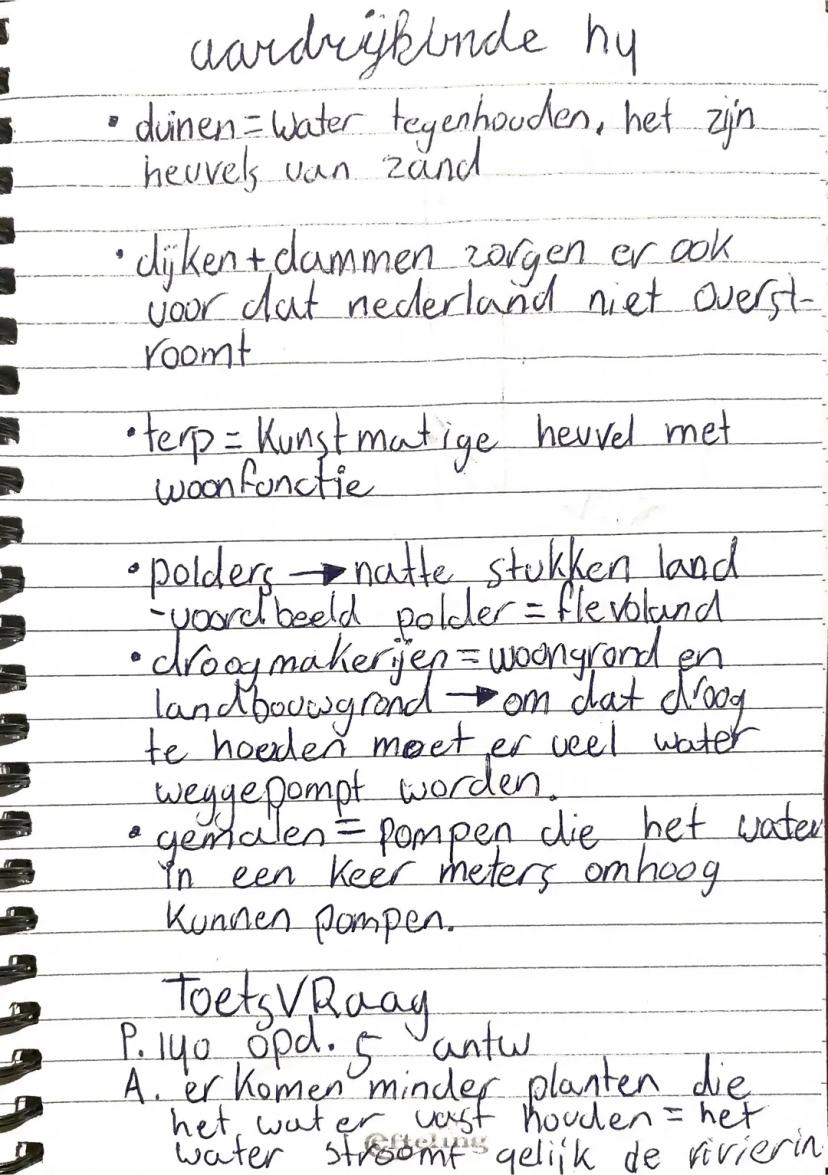 aardrijkunde h4
• duinen = water tegenhouden, het zijn
heuvels van zand
• dijken + dammen zorgen er ook
voor dat nederland niet overst-
roomt
• terp = kunstmatige heuvel met
woonfunctie
• polders → natte stukken land
- voordbeeld polder = flevoland
• droogmakerijen = woongrond en
landbouwgrond → om dat droog
te hoeden moet er veel water
weggepompt worden.
• gemalen = pompen die het water
in een keer meters omhoog
kunnen pompen.
ToetsVRaag
P. 140 opd. 5 antw
A. er komen minder planten die
het water vast houden = het
water stroomt gelijk de rivierin
efteling